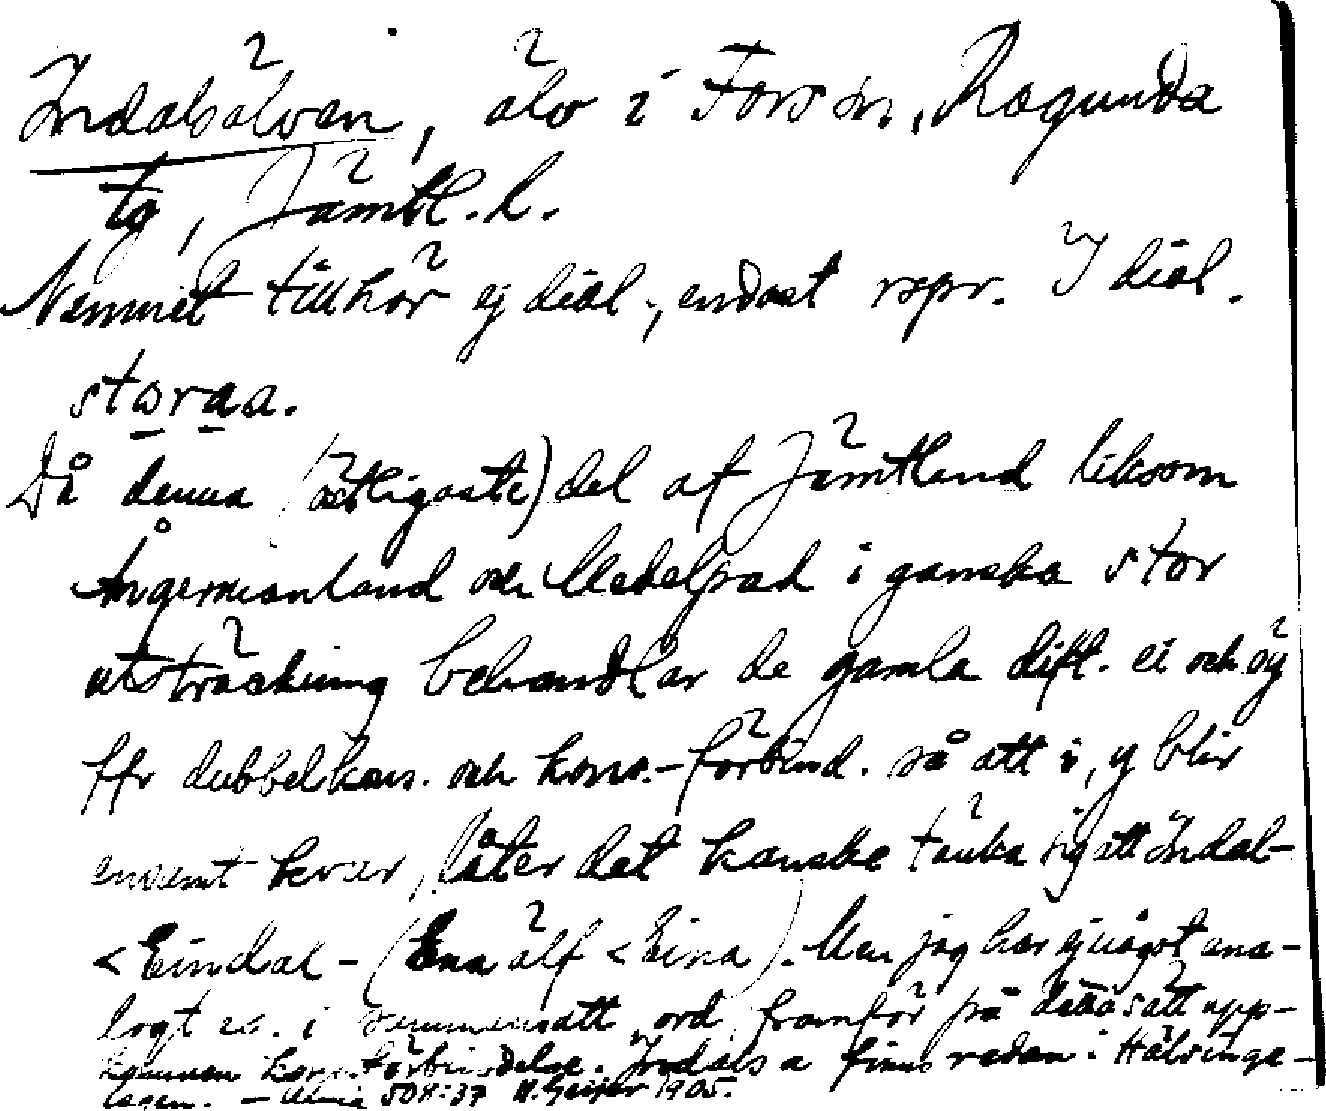 Indalsälven, älv i Fors sn, Ragunda
tg, Jämtl. l.
Namnet tillhör ej dial., endast rspr. I dial.
storaa.
Då denna (östligaste) del af Jämtland liksom
Ångermanland och Medelpad i ganska stor
utsträckning behandlar de gamla dift. ei och öy
ffr dubbelkons. och kons.-förbind. så att i, y blir
ensamt kvar, låter det kanske tänka sig att Indal-
< Eindal- (Ena älf < Eina). Men jag har ej något ana-
logt i sammansatt ord framför på detta sätt upp-
kommen kons.förbindelse. Indals a finns redan i Hälsinge-
lagen. – 508:37 H. Geijer 1905.